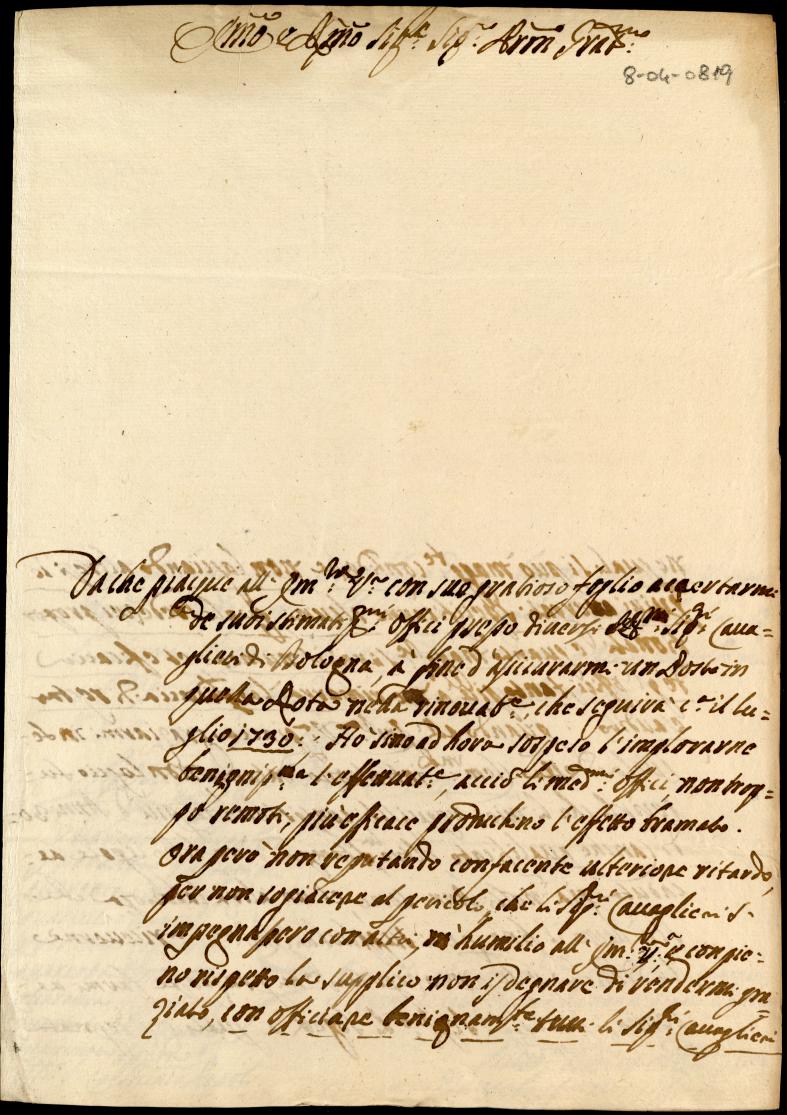 Ecc.mo e R.mo Sig.re Sig.re Pron. Grat.mo
8-04-0819
Da che piacque all' Em.za V.ra con suo gratioso foglio accertarmi
de suoi stimatiss.mi offici presso diversi Sig.ri Cava=
glieri di Bologna, à fine d'assicurarmi un Posto in
quella Rota nella rinovat.e, che seguirà c.a il lu=
glio 1730: Ho sino ad hora sospeso l'implorarne
benigniss.ma l'effettuat.e, acciò li med.mi offici, non trop=
pò remoti, più efficace produchino l'effetto bramato.
Ora però non reputando confacente ulteriore ritardo,
per non sogiacere al pericolo che li Sig.ri Cavaglieri s'
impegnassero con altri, m'humilio all' Em. V.ra, e con pie=
no rispetto la supplico non isdegnare di rendermi gra=
ziato, con officiare benignam.te tutti li Sig.ri Cavaglieri